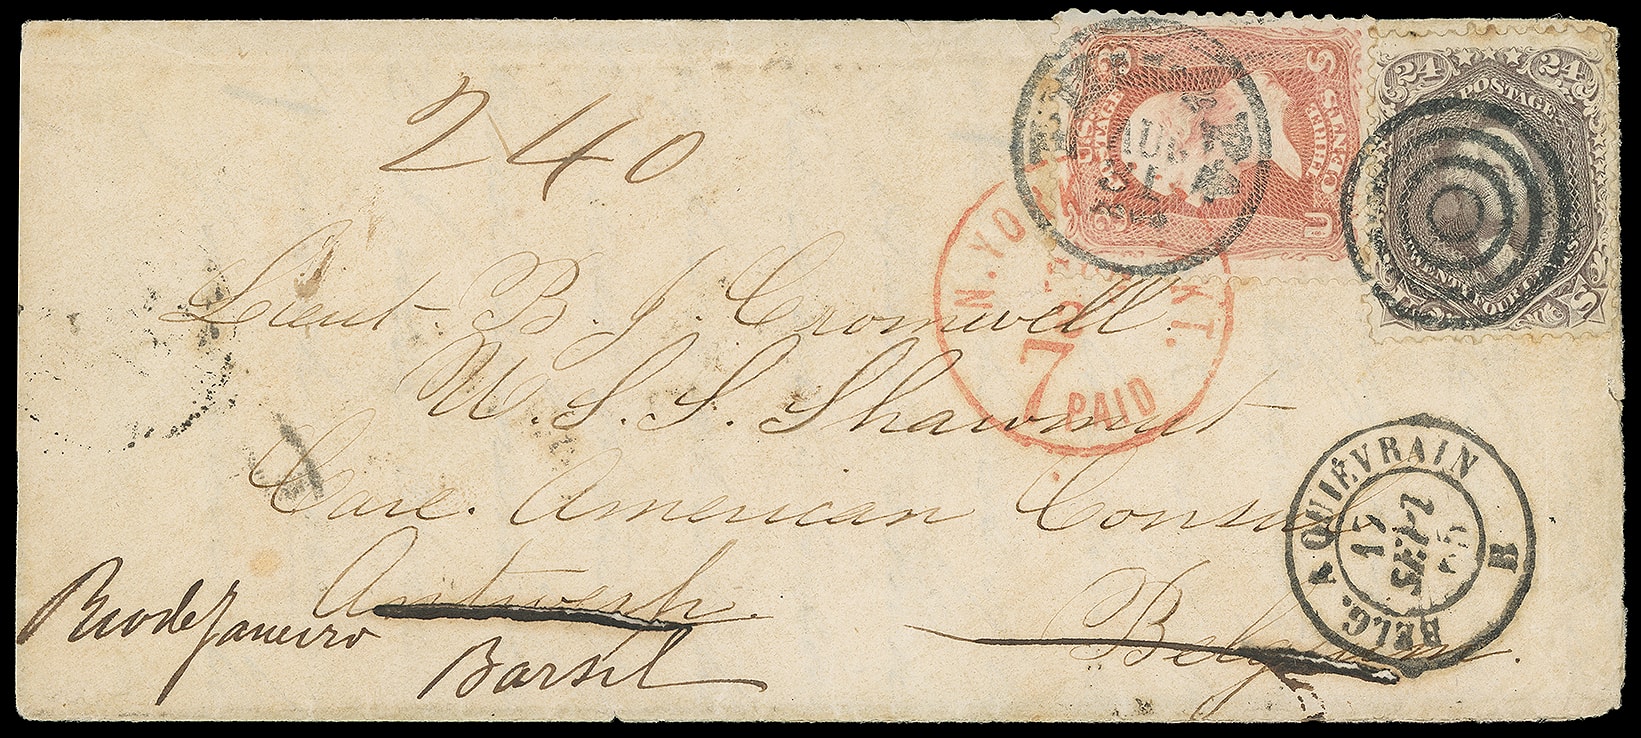 240
Lieut. B. J. Cromwell.
U. S. S. Shawmut
Care. American Consul
Antwerp.
Belgium.
Rio de Janeiro
Barsil
N. YO KT.
7
PAID
BELG. A QUIÉVRAIN
17
SEPT
65
H
3 3
U S
POSTAGE
THREE
U S
24 24
POSTAGE
TWENTY FOUR CENTS
U S